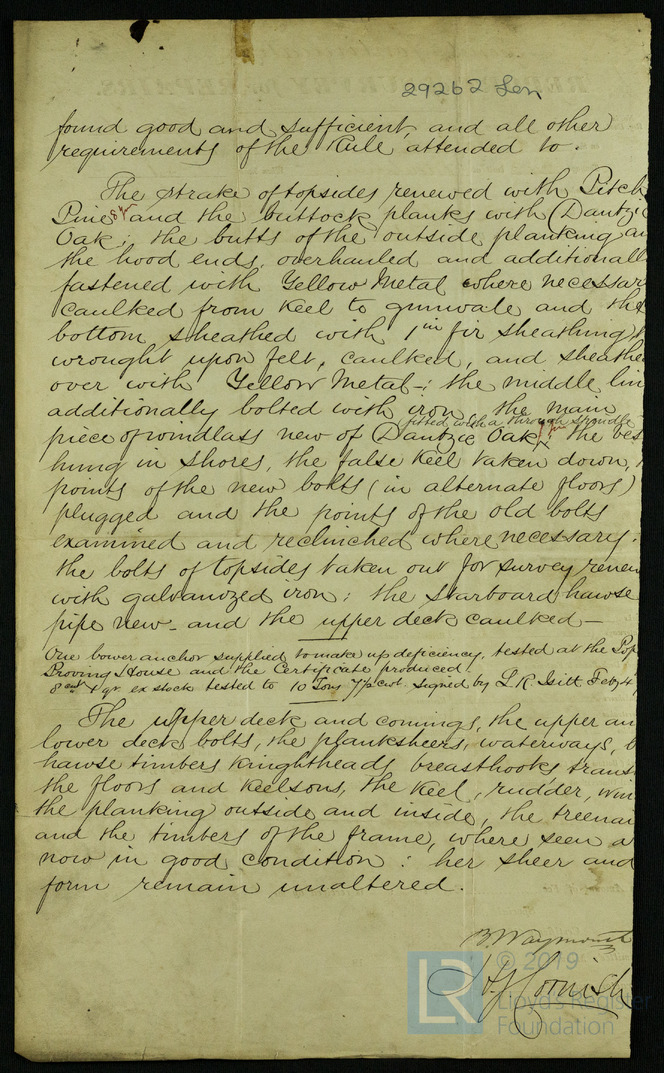 29262 Lon
found good and sufficient, and all other
requirements of the Rule attended to.
The strake of topsides renewed with Pitch
Pine and the buttock planks with Dantzic
Oak; the butts of the outside planking an
the hood ends, overhauled and additionall
fastened with Yellow Metal where necessar
caulked from Keel to gunwale and the
bottom sheathed with 1 in fir sheathing
wrought upon felt, caulked, and sheathe
over with Yellow Metal; the middle lin
additionally bolted with iron, the main
fitted with a through spindle
piece of windlass new of Dantzic Oak the ves
hung in shores, the false Keel taken down,
points of the new bolts (in alternate floors)
plugged and the points of the old bolts
examined and reclinched where necessary.
the bolts of topsides taken out for survey renew
with galvanized iron: the starboard hawse
pipe new and the upper deck caulked—
One bower anchor supplied to make up deficiency, tested at the Pop
Proving House and the Certificate produced.
8 cwt 1 qr ex stock tested to 10 Tons 7½ cwt signed by L R Isitt Feby 4
The upper deck and comings, the upper an
lower deck bolts, the planksheers, waterways, b
hawse timbers Knightheads breasthooks trans
the floors and Keelsons, the Keel, rudder, win
the planking outside and inside, the treenai
and the timbers of the frame, where seen a
now in good condition: her sheer and
form remain unaltered.
B. Waymouth
Cornish
LR
© 2019
Lloyd's Register
Foundation